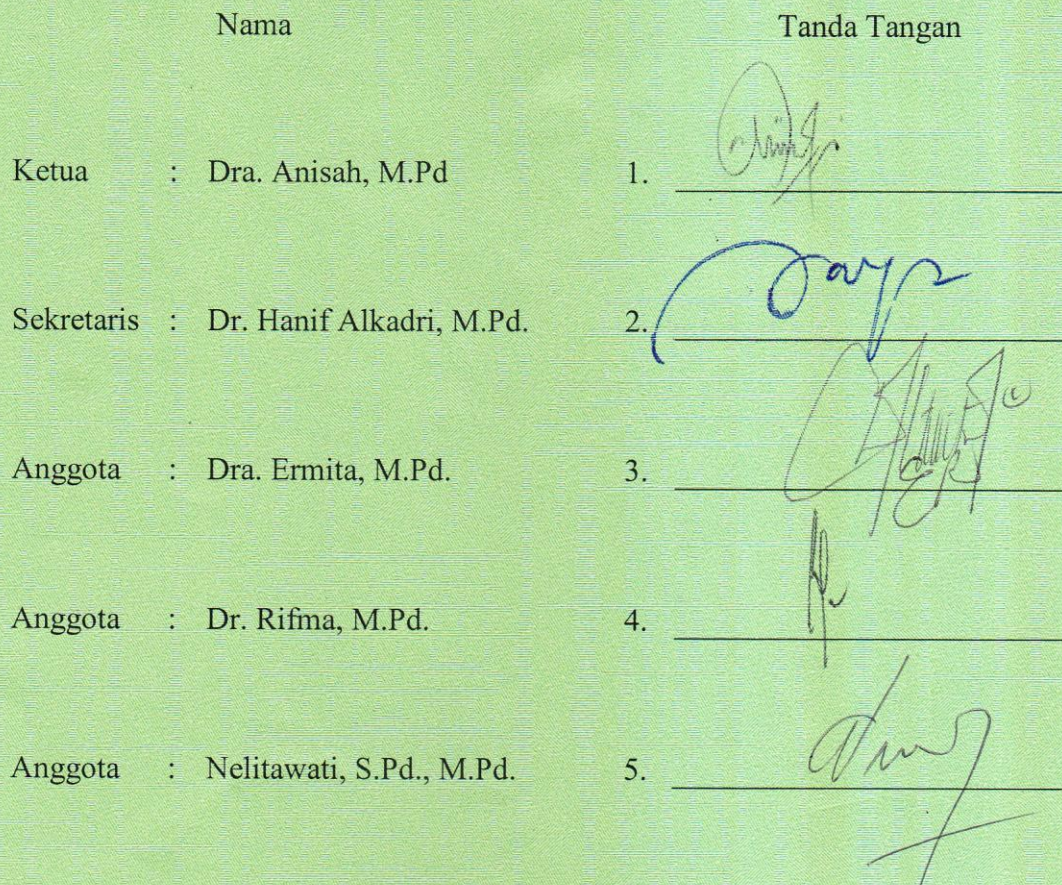 Nama Tanda Tangan
Ketua : Dra. Anisah, M.Pd 1.
Sekretaris : Dr. Hanif Alkadri, M.Pd. 2.
Anggota : Dra. Ermita, M.Pd. 3.
Anggota : Dr. Rifma, M.Pd. 4.
Anggota : Nelitawati, S.Pd., M.Pd. 5.